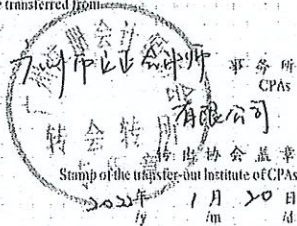 transferred from
会计师 事务所
CPAs
有限公司
转会
转出协会盖章
Stamp of the transfer-out Institute of CPAs
2022年 1月 20日
/y /m /d